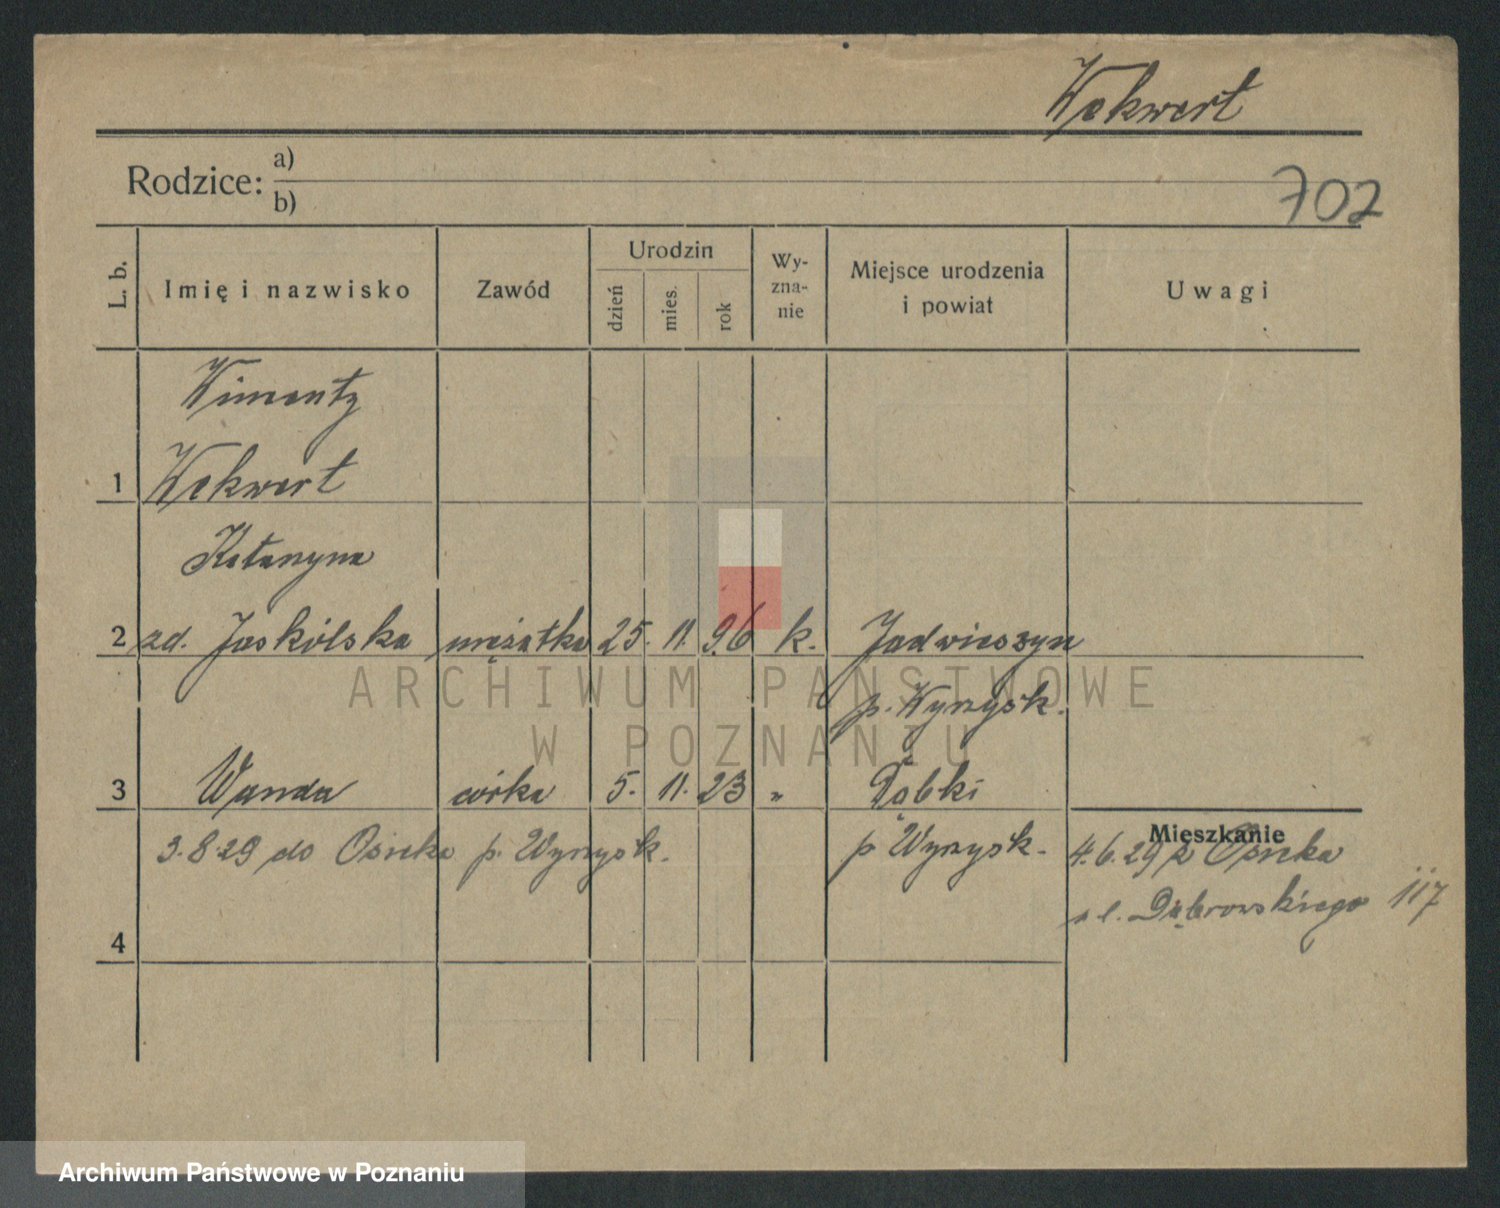 Wekwert
Rodzice:
a)
b)
702
L. b.
Imię i nazwisko
Zawód
Urodzin
dzień
mies.
rok
Wy-
zna-
nie
Miejsce urodzenia
i powiat
Uwagi
1
Wekwert
Katarzyna
2 zd. Jaskólska mężatka 25. 11. 96 k. Jadwieszyn
p. Wyrzysk.
3 Wanda córka 5. 11. 23 „ Dąbki
p Wyrzysk.
3.8.29 do Osieka p. Wyrzysk.
Mieszkanie
4.6.29 z Osieka
ul. Dąbrowskiego 117
4
ARCHIWUM PAŃSTWOWE
W POZNANIU
Archiwum Państwowe w Poznaniu